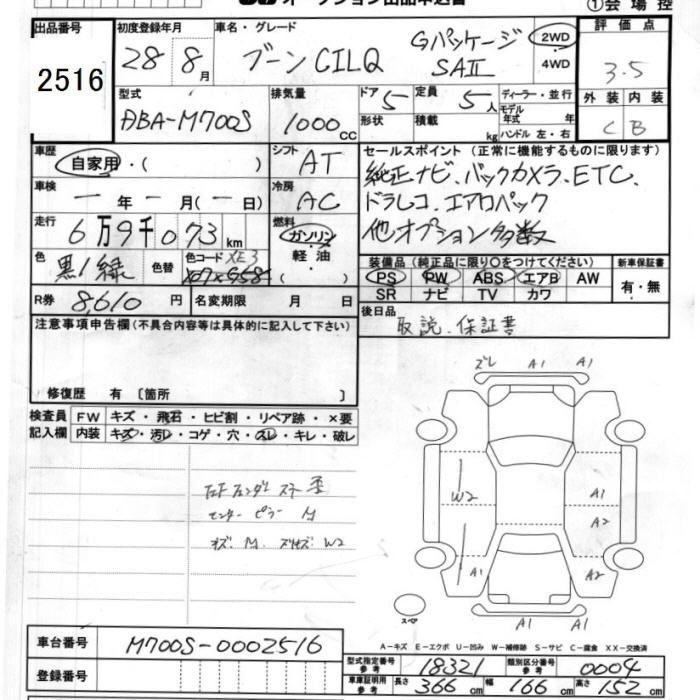 ①会場控
出品番号
2516
初度登録年月
28 8月
車名・グレード
ブーンCILQ
Gパッケージ
SAⅡ
2WD
4WD
評価点
3.5
型式
DBA-M700S
排気量
1000cc
ドア 5
形状
定員 5人
積載 kg
ディーラー・並行
モデル年式 年
ハンドル 左・右
外装 内装
C B
車歴
自家用・( )
シフト AT
車検
一年一月(一日)
冷房 AC
走行
6万9千073km
燃料
ガソリン
軽油
( )
色
黒/緑
色替
色コード XE3
R券
8,610円
名変期限 月 日
セールスポイント(正常に機能するものに限ります)
純正ナビ、バックカメラ、ETC、
ドラレコ、エアロパック
他オプション多数
装備品(純正品に限り〇をつけてください)
PS PW ABS エアB AW
SR ナビ TV カワ
新車保証書
有・無
後日品
取説・保証書
注意事項申告欄(不具合内容等は具体的に記入して下さい)
修復歴 有〔箇所 〕
検査員記入欄
FW キズ・飛石・ヒビ割・リペア跡・×要
内装 キズ・汚レ・コゲ・穴・スレ・キレ・破レ
センターピラー M
W2
ズレ A1 A1
W2
A1
A2
A1 A2
A1 A1
スペア
車台番号
M700S-0002516
登録番号
A－キズ E－エクボ U－凹み W－補修跡 S－サビ C－腐食 XX－交換済
型式指定番号 参考 18321
類別区分番号 参考 0004
車庫証明用 参考 長さ 366cm 幅 166cm 高さ 152cm